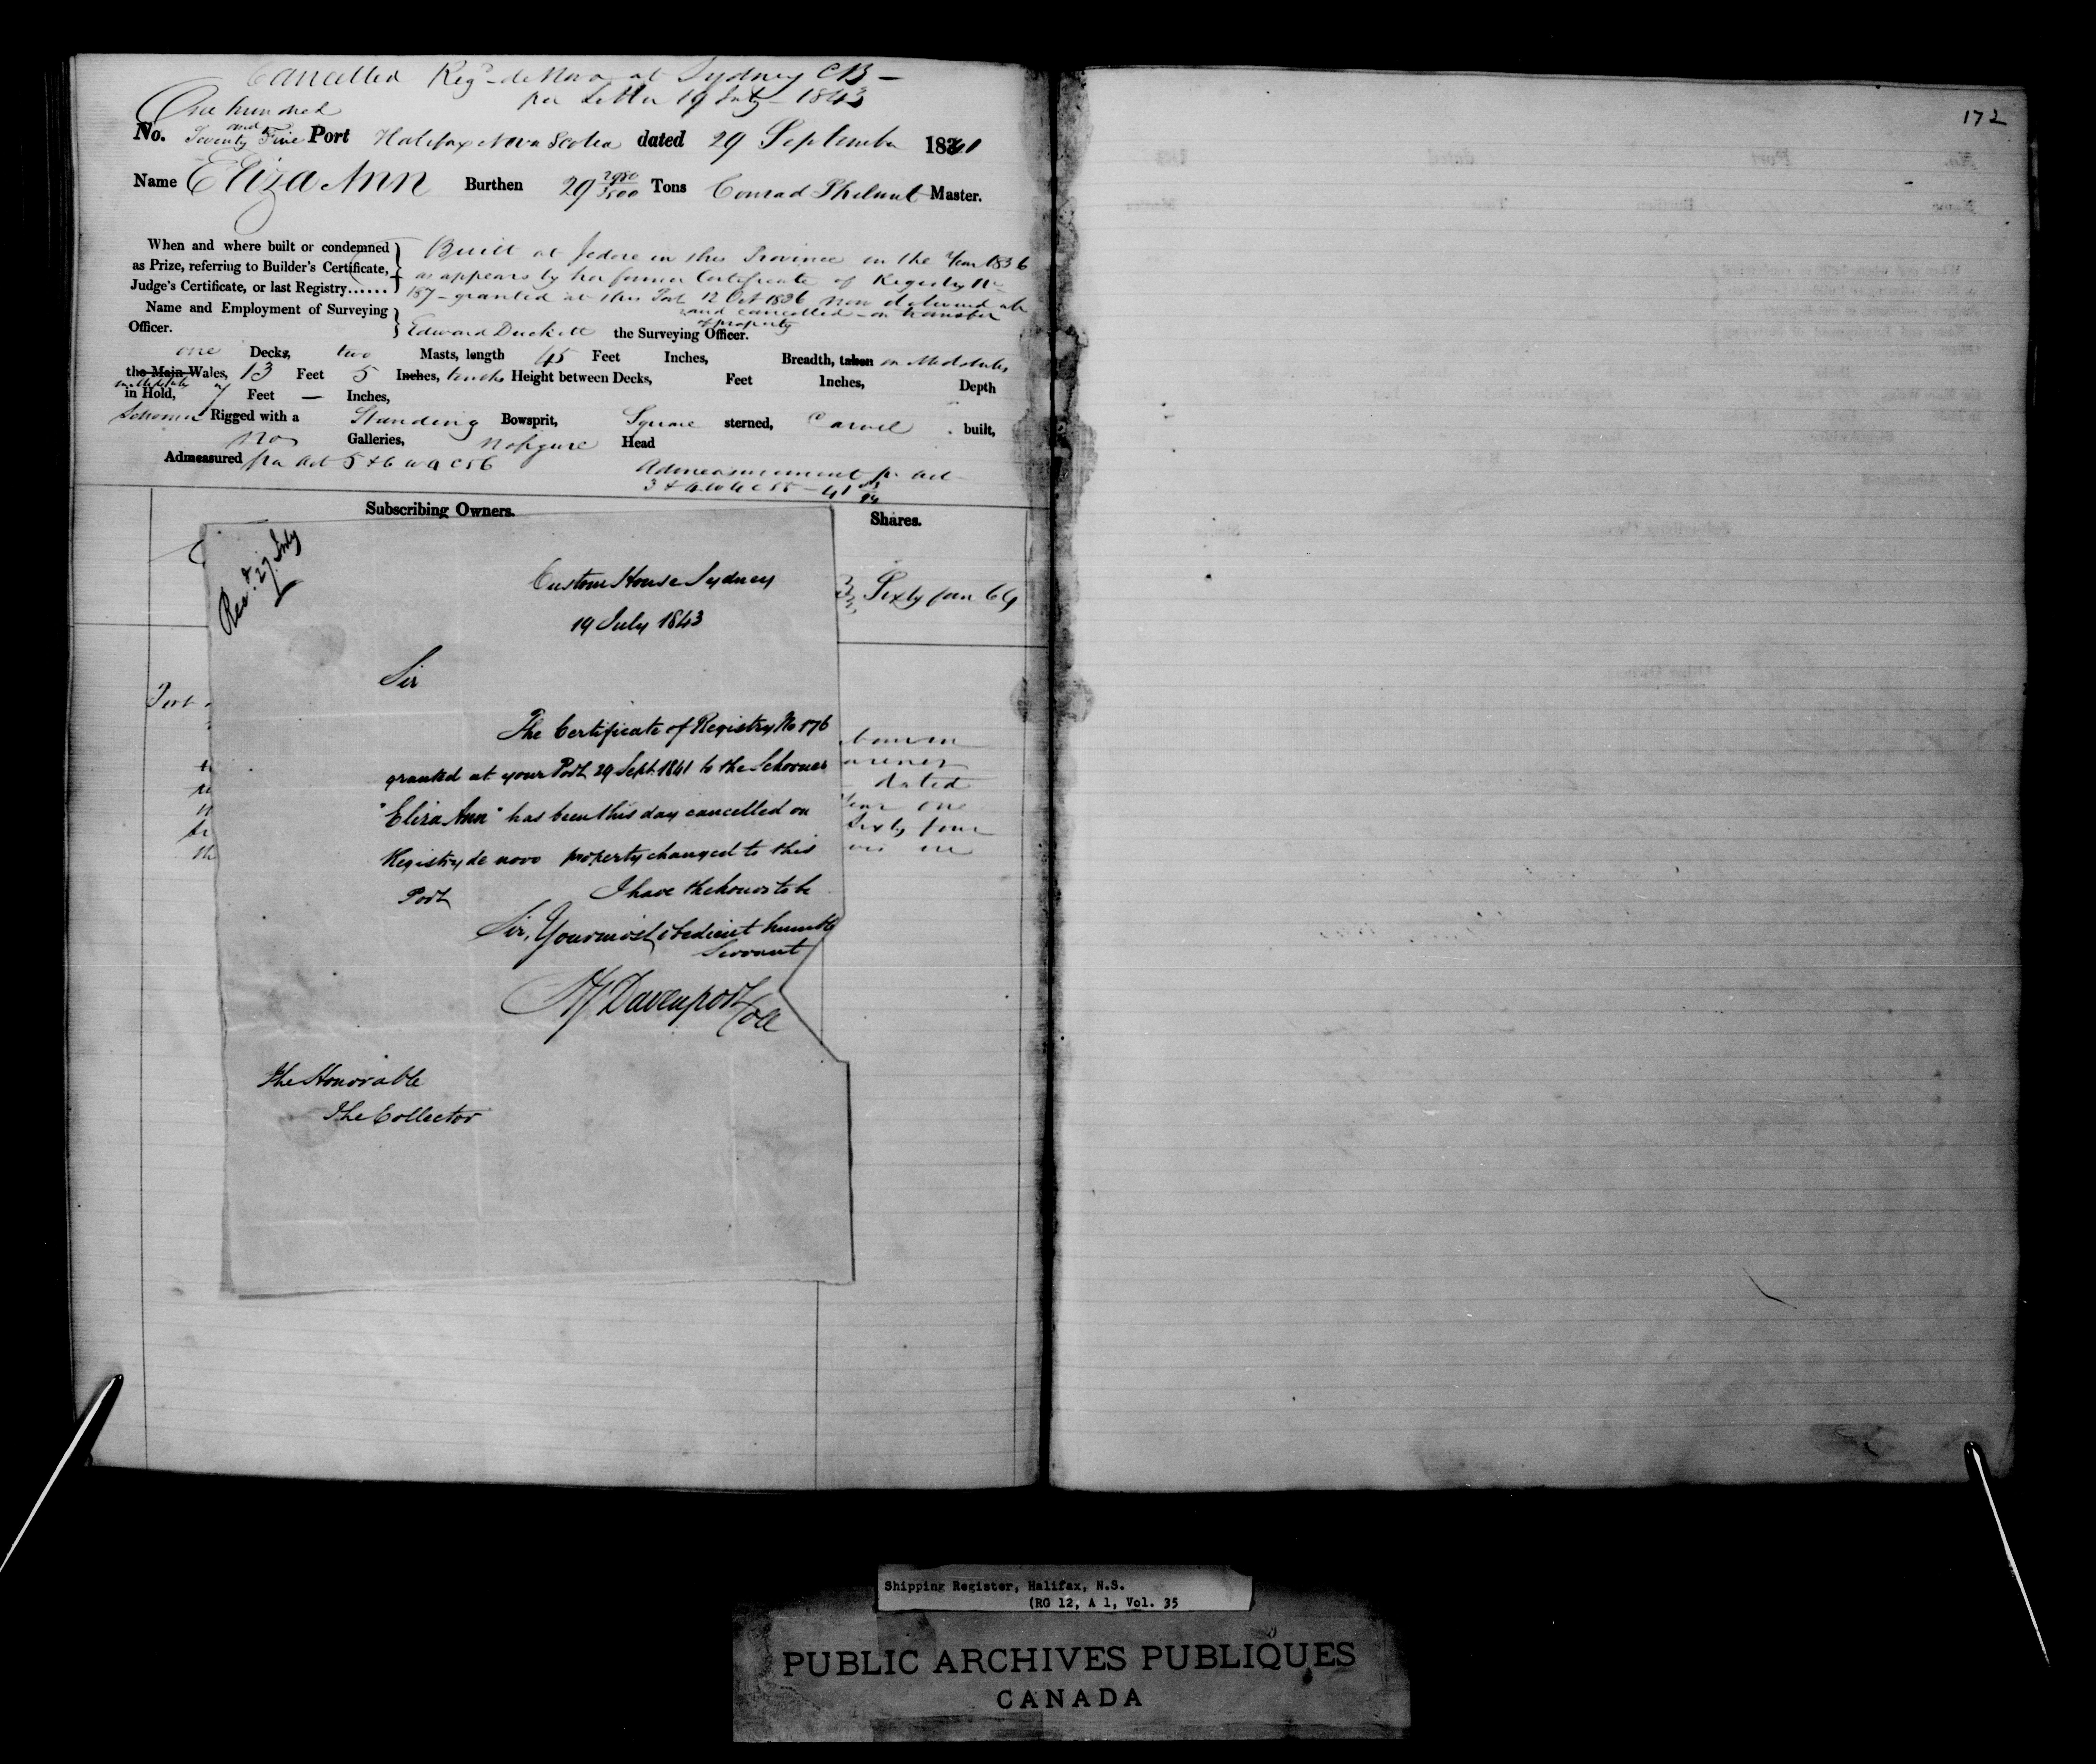 Cancelled Regd. de Novo at Sydney CB –
per Letter 19 July – 1843
One hundred
and
No. Seventy Five Port Halifax Nova Scotia dated 29 September 1841
Name Eliza Ann Burthen 29 2980/3500 Tons Conrad Master.
When and where built or condemned
as Prize, referring to Builder's Certificate,
Judge's Certificate, or last Registry......
Built at Jedore in this Province in the Year 1836
as appears by her former Certificate of Registry No
187 – granted at this Port 12 Oct 1836 now delivered up
and cancelled – on transfer
of property
Name and Employment of Surveying
Officer.
Edward Duckett the Surveying Officer.
one Decks, two Masts, length 45 Feet Inches, Breadth, taken in Midships
the Main Wales, 13 Feet 5 Inches, tenths Height between Decks, Feet Inches, Depth
in Hold, 7 Feet — Inches,
Schooner Rigged with a Standing Bowsprit, Square sterned, Carvel built,
no Galleries, no figure Head
Admeasured per Act 5 & 6 W 4 C 56
Admeasurement pr act
3 & 4 W 4 C 55 – 41
Subscribing Owners.
Shares.
Sixty four 64
Port
dated
Year one
Sixty four
Recd. 27 July
Custom House Sydney
19 July 1843
Sir
The Certificate of Registry No 176
granted at your Port 29 Sept. 1841 to the Schooner
"Eliza Ann" has been this day cancelled on
Registry de novo property changed to this
Port I have the honor to be
Sir, Your most obedient humble
Servant
Davenport
Coll
The Honorable
The Collector
172
Shipping Register, Halifax, N.S.
(RG 12, A 1, Vol. 35
PUBLIC ARCHIVES PUBLIQUES
CANADA